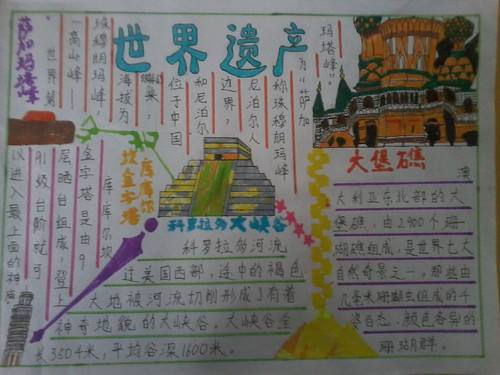 世界遗产
萨加玛塔峰
玛塔峰”。
为“萨加
称珠穆朗玛峰
尼泊尔人
边界，
和尼泊尔
位于中国
海拔为
珠穆朗玛峰，
一高山峰——
世界第
库库尔
坎金字塔
库库尔坎
金字塔是由9
层晒台组成，登上
91级台阶就可
以进入最上面的神庙
科罗拉多大峡谷
科罗拉多河流
过美国西部，途中的褐色
大地被河流切削形成了有着
神奇地貌的大峡谷。大峡谷全
长3504米，平均谷深1600米。
大堡礁
澳
大利亚东北部的大
堡礁，由2900个珊
瑚礁组成，是世界七大
自然奇景之一，那些由
几毫米珊瑚虫组成的千
姿百态、颜色各异的
珊瑚群。